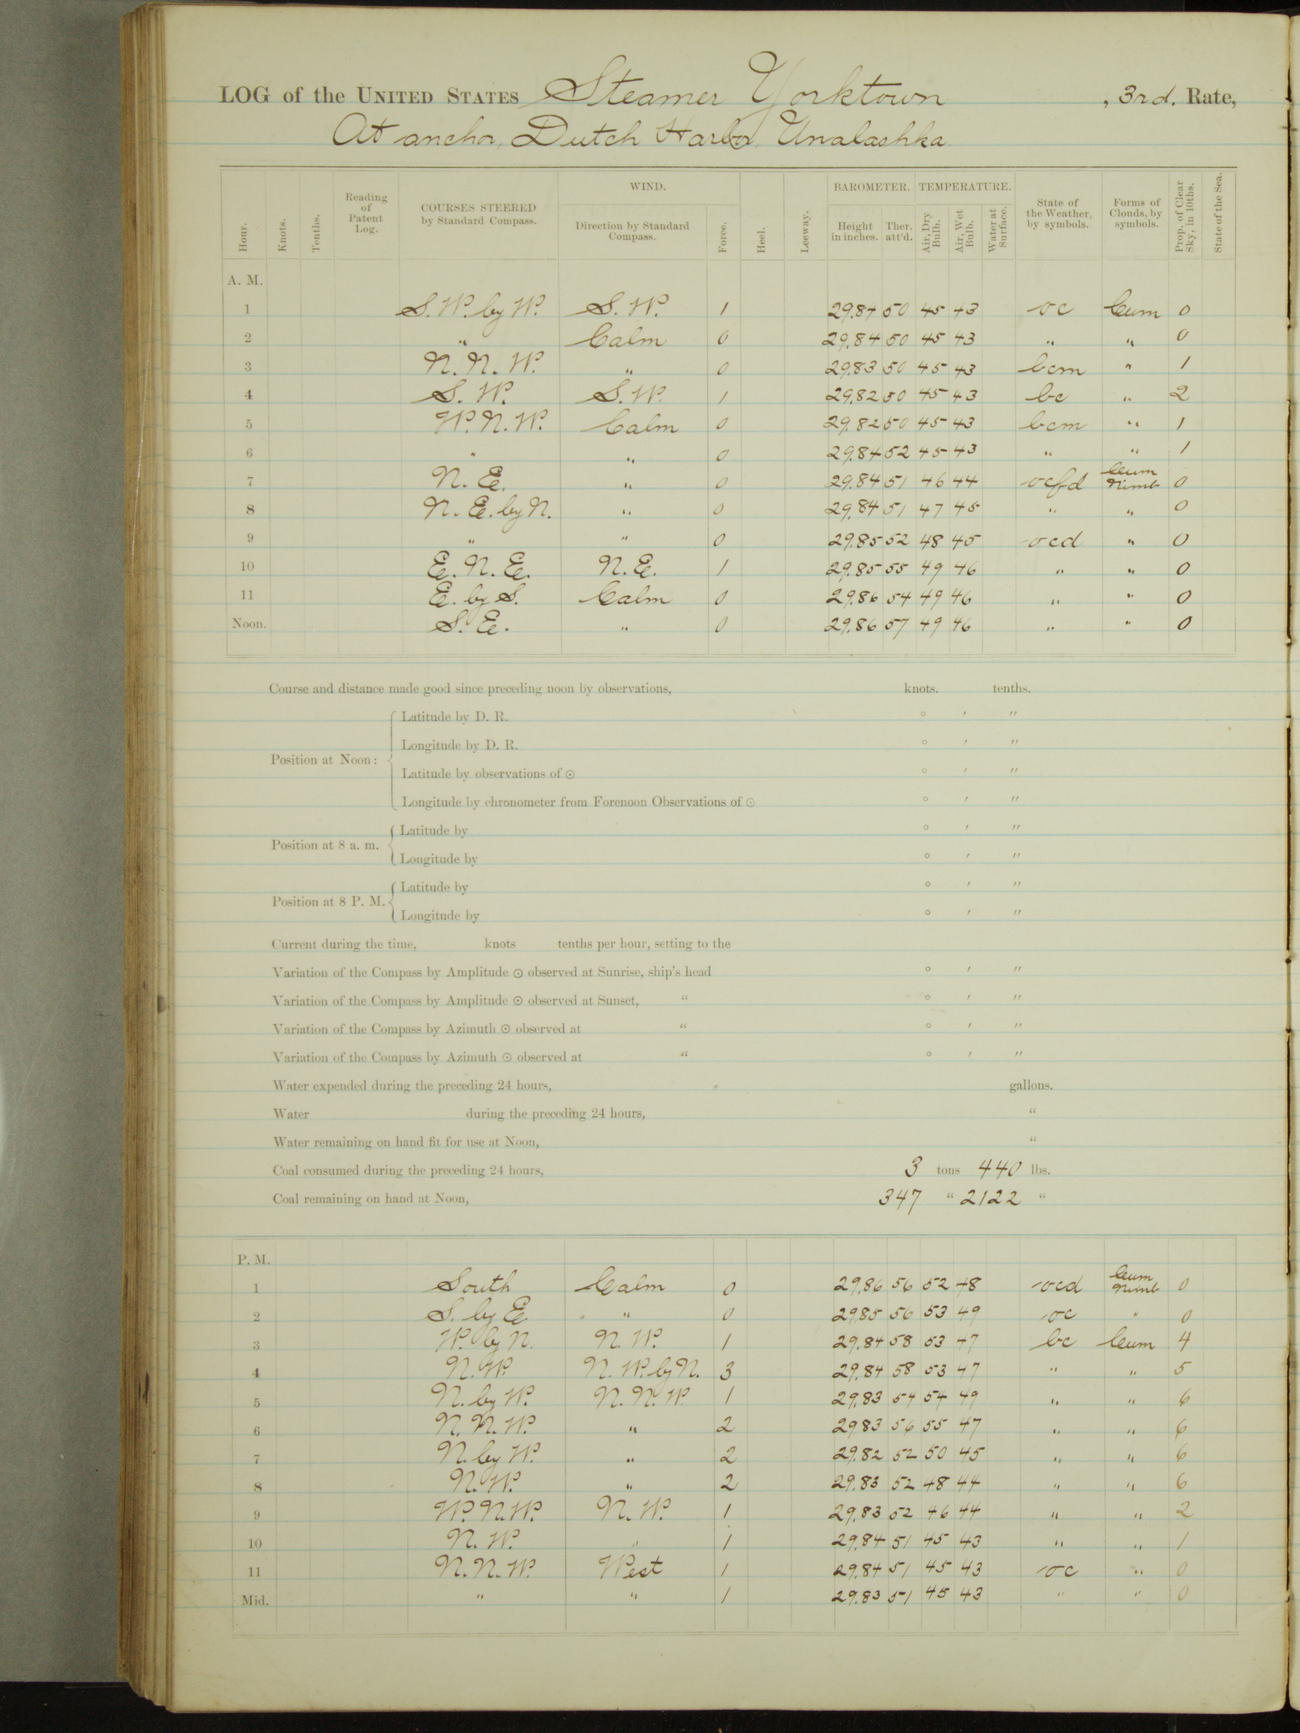 LOG of the UNITED STATES Steamer Yorktown, 3rd. Rate,
At anchor, Dutch Harbor, Unalashka.
WIND. BAROMETER. TEMPERATURE.
Hour. Knots. Tenths. Reading of Patent Log. COURSES STEERED by Standard Compass. Direction by Standard Compass. Force. Heel. Leeway. Height in inches. Ther. att'd. Air, Dry Bulb. Air, Wet Bulb. Water at Surface. State of the Weather, by symbols. Forms of Clouds, by symbols. Prop. of Clear Sky, in 10ths. State of the Sea.
A. M.
1 S. W. by W. S. W. 1 29.84 50 45 43 oc Cum 0
2 " Calm 0 29.84 50 45 43 " " 0
3 N. N. W. " 0 29.83 50 45 43 bcm " 1
4 S. W. S. W. 1 29.82 50 45 43 bc " 2
5 W. N. W. Calm 0 29.82 50 45 43 bcm " 1
6 " " 0 29.84 52 45 43 " " 1
7 N. E. " 0 29.84 51 46 44 ocfd Cum Nimb 0
8 N. E. by N. " 0 29.84 51 47 45 " " 0
9 " " 0 29.85 52 48 45 ocd " 0
10 E. N. E. N. E. 1 29.85 55 49 46 " " 0
11 E. by S. Calm 0 29.86 54 49 46 " " 0
Noon. S. E. " 0 29.86 57 49 46 " " 0
Course and distance made good since preceding noon by observations, knots. tenths.
Latitude by D. R. ° ′ ″
Longitude by D. R. ° ′ ″
Position at Noon:
Latitude by observations of ⊙ ° ′ ″
Longitude by chronometer from Forenoon Observations of ⊙ ° ′ ″
Latitude by ° ′ ″
Position at 8 a. m.
Longitude by ° ′ ″
Latitude by ° ′ ″
Position at 8 P. M.
Longitude by ° ′ ″
Current during the time, knots tenths per hour, setting to the
Variation of the Compass by Amplitude ⊙ observed at Sunrise, ship's head ° ′ ″
Variation of the Compass by Amplitude ⊙ observed at Sunset, " ° ′ ″
Variation of the Compass by Azimuth ⊙ observed at " ° ′ ″
Variation of the Compass by Azimuth ⊙ observed at " ° ′ ″
Water expended during the preceding 24 hours, gallons.
Water during the preceding 24 hours, "
Water remaining on hand fit for use at Noon, "
Coal consumed during the preceding 24 hours, 3 tons 440 lbs.
Coal remaining on hand at Noon, 347 " 2122 "
P. M.
1 South Calm 0 29.86 56 52 48 ocd Cum Nimb 0
2 S. by E " 0 29.85 56 53 49 oc " 0
3 W. by N. N. W. 1 29.84 58 53 47 bc Cum 4
4 N. W. N. W. by N. 3 29.84 58 53 47 " " 5
5 N. by W. N. N. W. 1 29.83 54 54 49 " " 6
6 N. N. W. " 2 29.83 56 55 47 " " 6
7 N. by W. " 2 29.82 52 50 45 " " 6
8 N. W. " 2 29.83 52 48 44 " " 6
9 W. N. W. N. W. 1 29.83 52 46 44 " " 2
10 N. W. " 1 29.84 51 45 43 " " 1
11 N. N. W. West 1 29.84 51 45 43 oc " 0
Mid. " " 1 29.83 51 45 43 " " 0